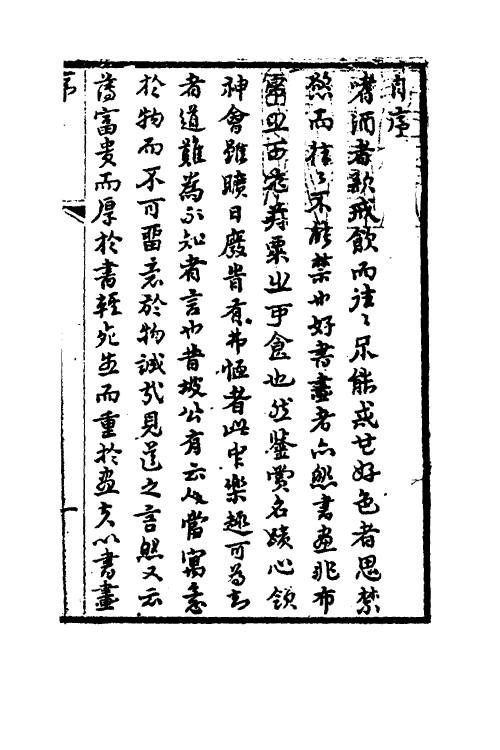 自序
嗜酒者歌戒飲而往〻不能戒也好色者思禁
慾而往〻不能禁也好書畫者亦然書畫非布
帛之可衣菽粟之可食也然鑒賞名蹟心領
神會雖曠日廢時有弗恤者此中樂趣可為知
者道難為不知者言也昔坡公有云人當寓意
於物而不可留意於物誠哉見道之言然又云
薄富貴而厚於書輕死生而重於畫夫以書畫
序
一